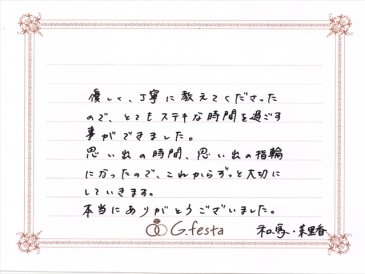 優しく、丁寧に教えてくださった
ので、とてもステキな時間を過ごす
事ができました。
思い出の時間、思い出の指輪
になったので、これからずっと大切に
していきます。
本当にありがとうございました。
G.festa